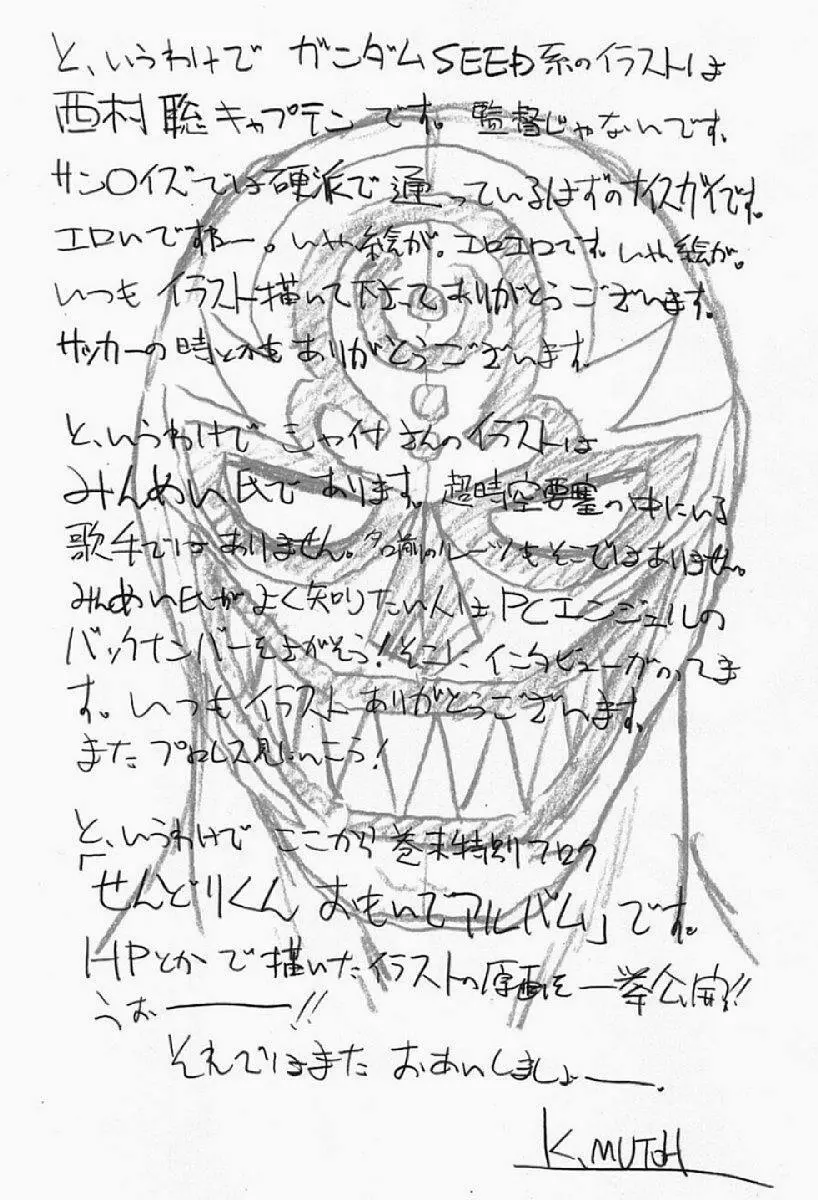 と、いうわけで ガンダムSEED系のイラストは
西村聡キャプテンです。監督じゃないです。
サン〇イズでは硬派で通っているはずのナイスガイです。
エロいですねー。いや絵が。エロエロです。いや絵が。
いつもイラスト描いて下さってありがとうございます。
サッカーの時とかもありがとうございます。
と、いうわけで さんのイラストは
みんめい氏であります。超時空要塞の中にいる
歌手ではありません。名前のルーツもそこではありません。
みんめい氏がよく知りたい人はPCエンジェルの
バックナンバーをさがそう!そこにインタビューがのってま
す。いつもイラストありがとうございます。
またプロレス見にいこう!
と、いうわけで ここから巻末特別フロク
「せんどりくん おもいでアルバム」です。
HPとかで描いたイラストの原画を一挙公開!!
うおーーー!!
それではまた おあいしましょーー。
K.MUTOH